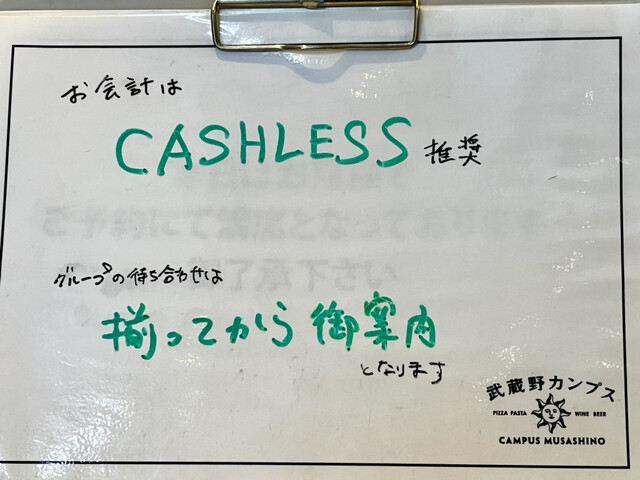 お会計は
CASHLESS 推奨
ご予約にて満席となっております
了承下さい
グループの待ち合わせは
揃ってから御案内
となります
武蔵野カンプス
PIZZA PASTA WINE BEER
CAMPUS MUSASHINO